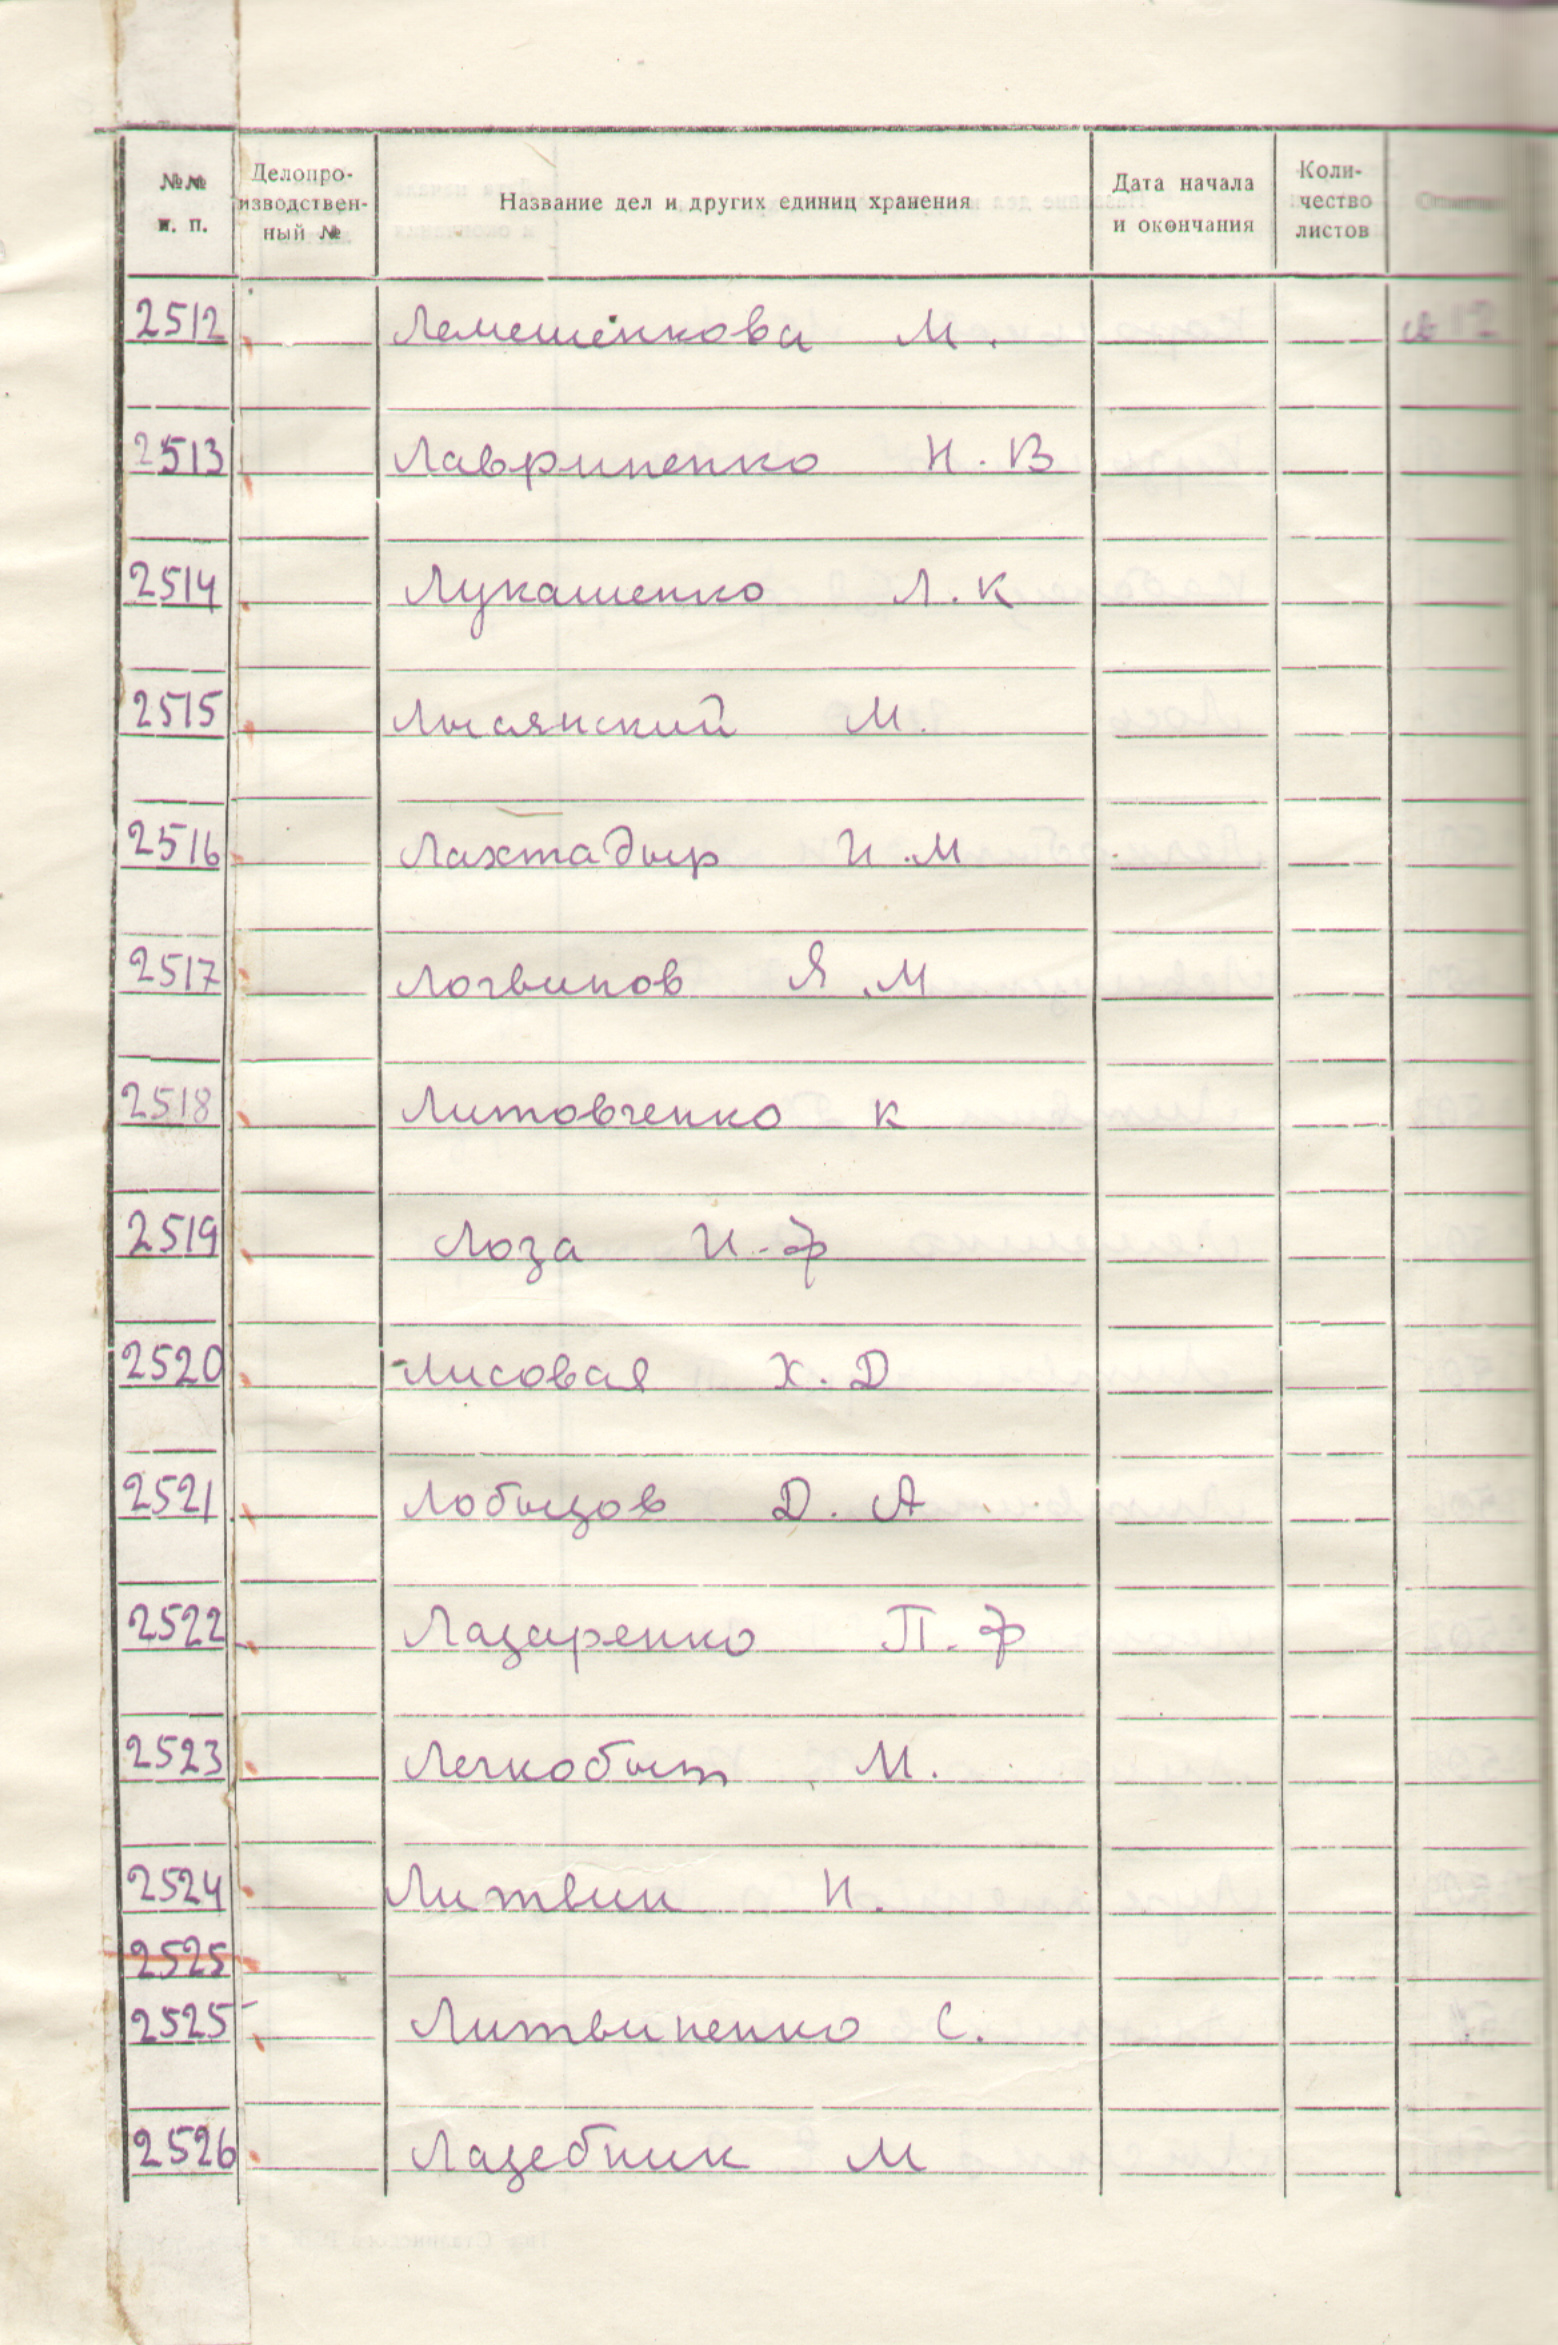 №№ п. п. Делопроизводственный № Название дел и других единиц хранения Дата начала и окончания Количество листов
2512 Лемешенкова М.
2513 Лавриненко Н. В
2514 Лукашенко Л. К
2515 Лысянский М.
2516 Лахтадыр И. М
2517 Логвинов Я. М
2518 Литовченко К
2519 Лоза И. Ф
2520 Лисовая Х. Д
2521 Лобызов Д. А
2522 Лазаренко П. Ф
2523 Легкобыт М.
2524 Литвин И.
2525
2525 Литвиненко С.
2526 Лазебник М